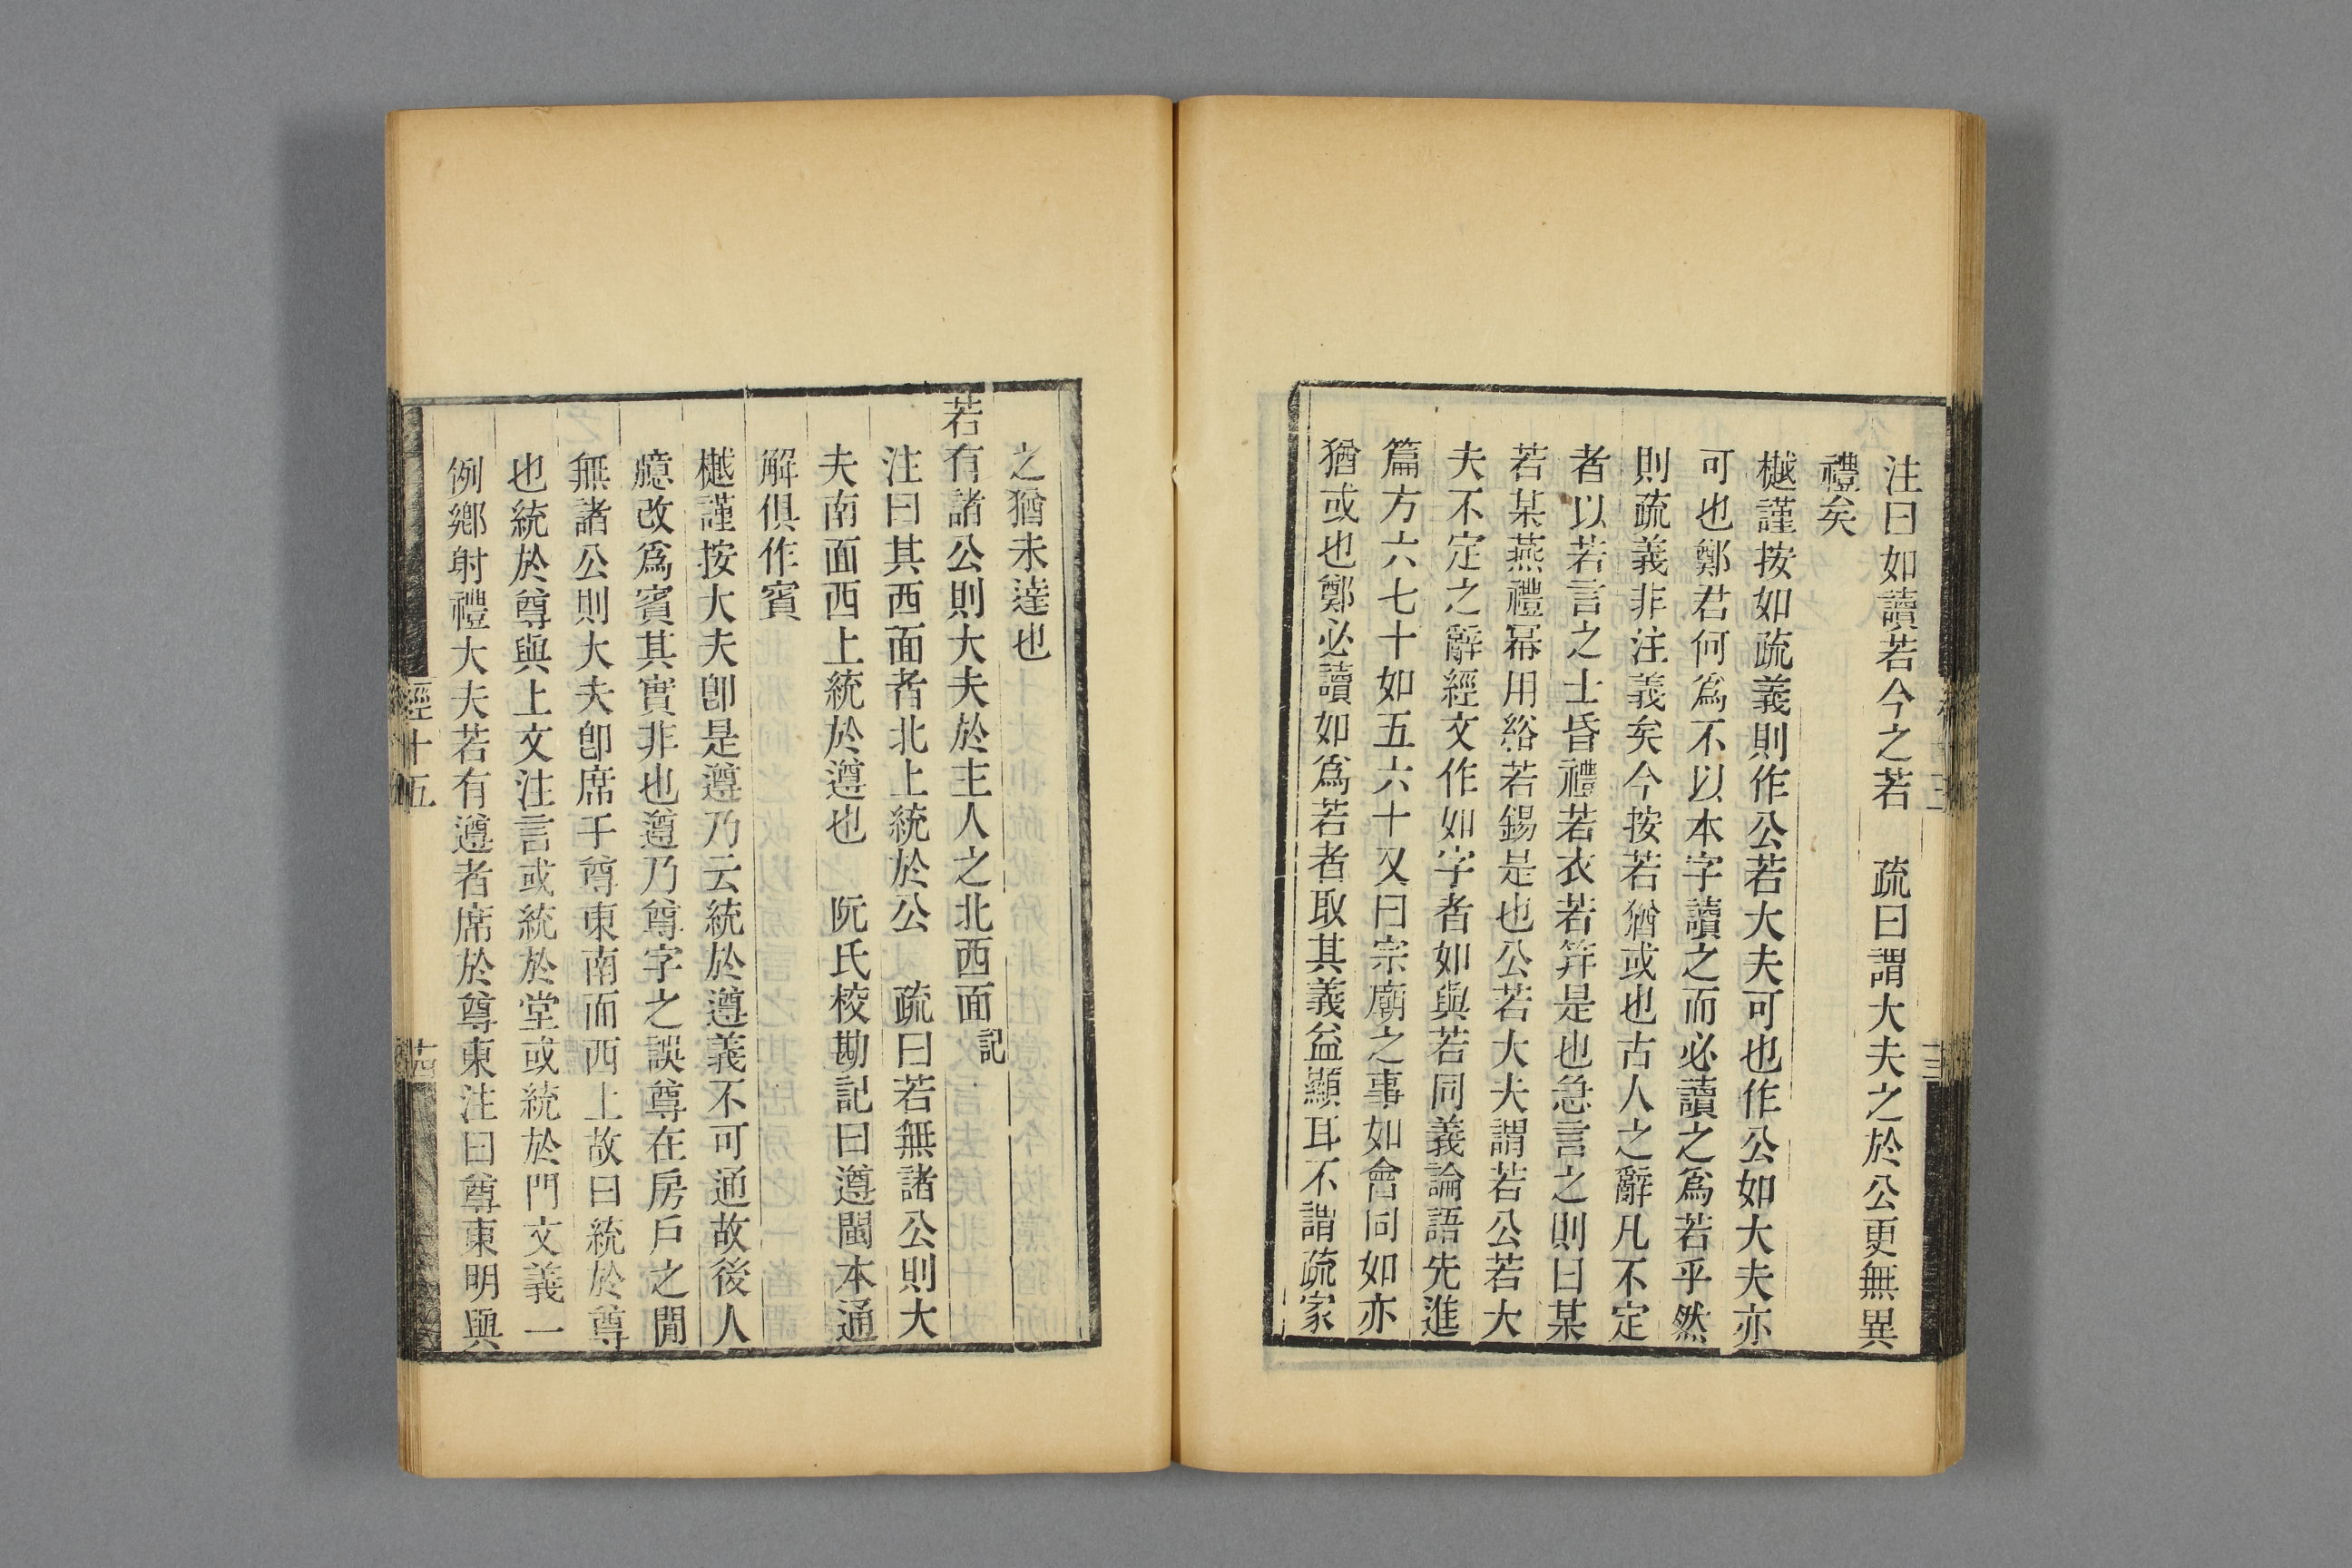 注曰如讀若今之若　疏曰謂大夫之於公更無異
禮矣
樾謹按如疏義則作公若大夫可也作公如大夫亦
可也鄭君何爲不以本字讀之而必讀之爲若乎然
則疏義非注義矣今按若猶或也古人之辭凡不定
者以若言之士昏禮若衣若笄是也急言之則曰某
若某燕禮冪用綌若錫是也公若大夫謂若公若大
夫不定之辭經文作如字者如與若同義論語先進
篇方六七十如五六十又曰宗廟之事如會同如亦
猶或也鄭必讀如爲若者取其義益顯耳不謂疏家
之猶未達也
若有諸公則大夫於主人之北西面記
注曰其西面者北上統於公　疏曰若無諸公則大
夫南面西上統於遵也　阮氏校勘記曰遵閩本通
解俱作賓
樾謹按大夫卽是遵乃云統於遵義不可通故後人
臆改爲賓其實非也遵乃尊字之誤尊在房戶之閒
無諸公則大夫卽席于尊東南面西上故曰統於尊
也統於尊與上文注言或統於堂或統於門文義一
例鄉射禮大夫若有遵者席於尊東注曰尊東明與
經十五
十四